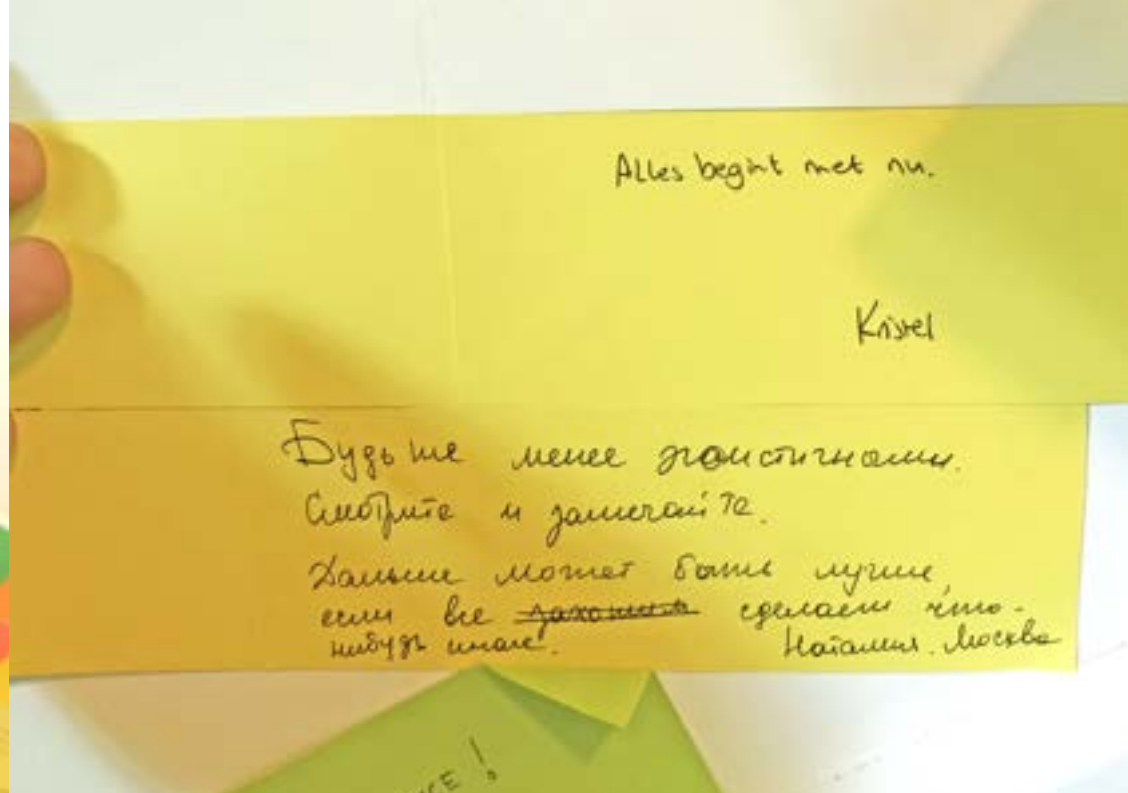 Alles begint met nu.
Kristel
Будьте менее эгоистичными.
Смотрите и замечайте.
Дальше может быть лучше,
если все захотим сделаем что-
нибудь иначе. Наталия. Москва
!